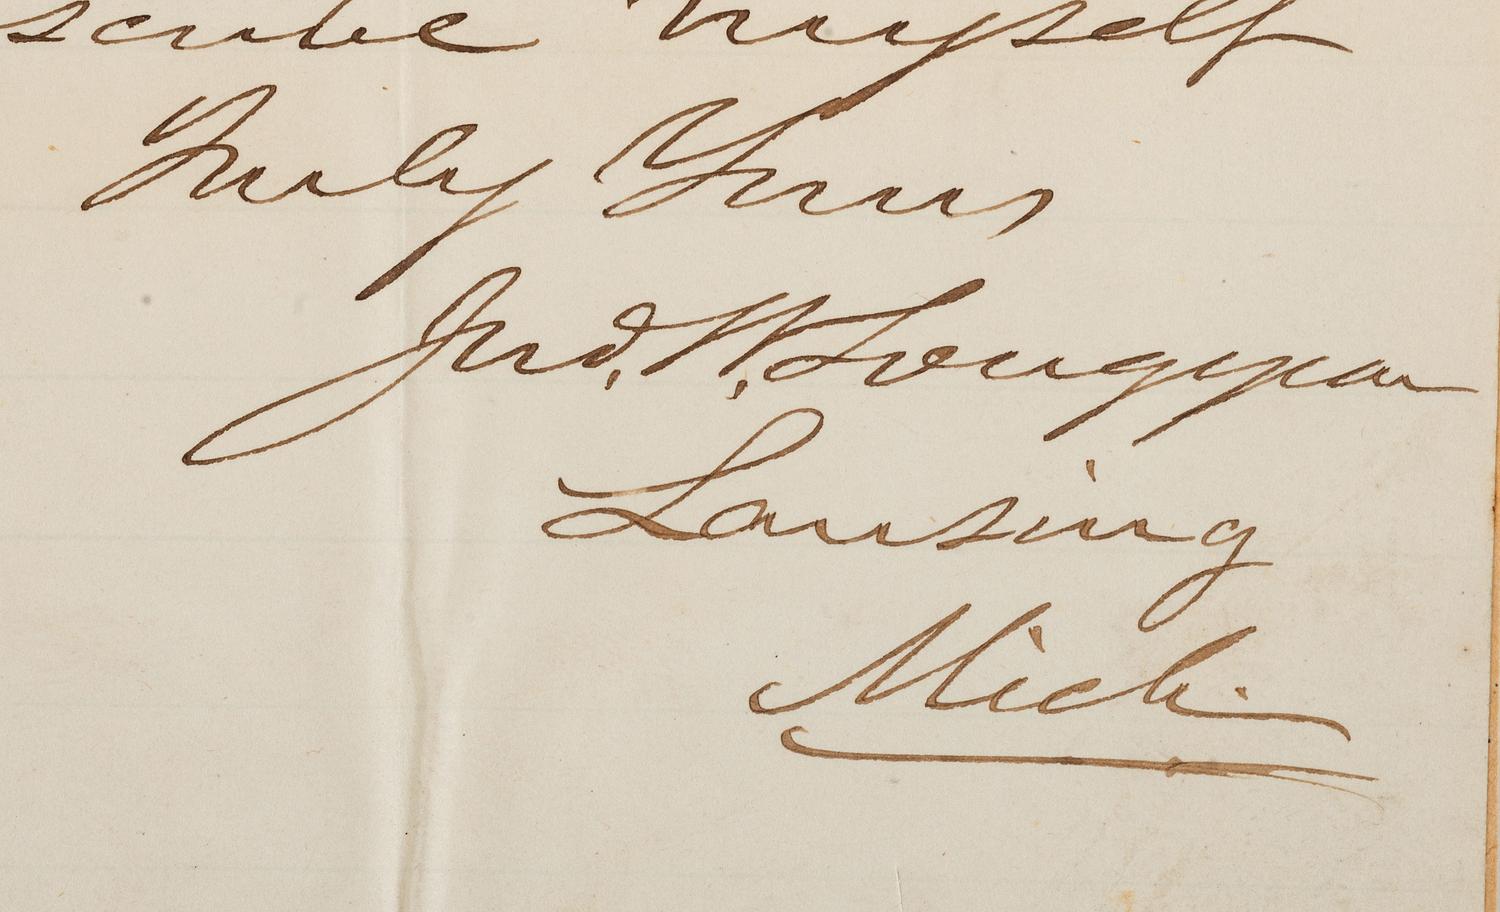 scribe myself
Truly Yours
Jno. W. Longyear
Lansing
Mich.